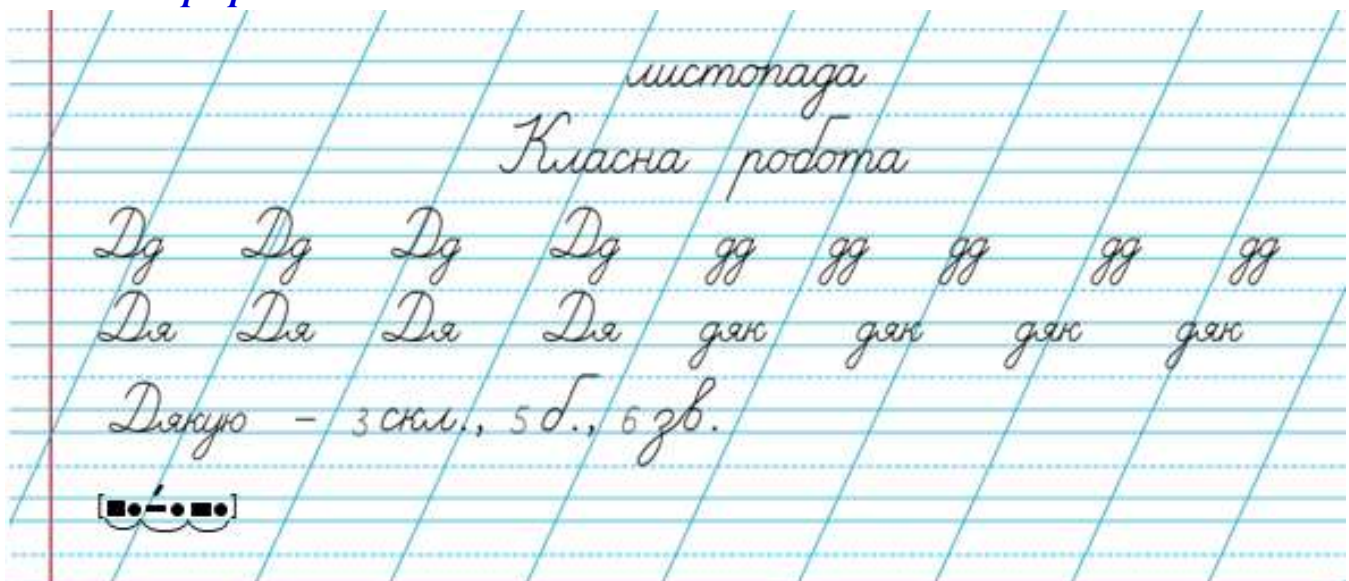 листопада
Класна робота
Дд Дд Дд Дд дд дд дд дд дд
Дя Дя Дя Дя дяк дяк дяк дяк
Дякую - 3 скл., 5 б., 6 зв.